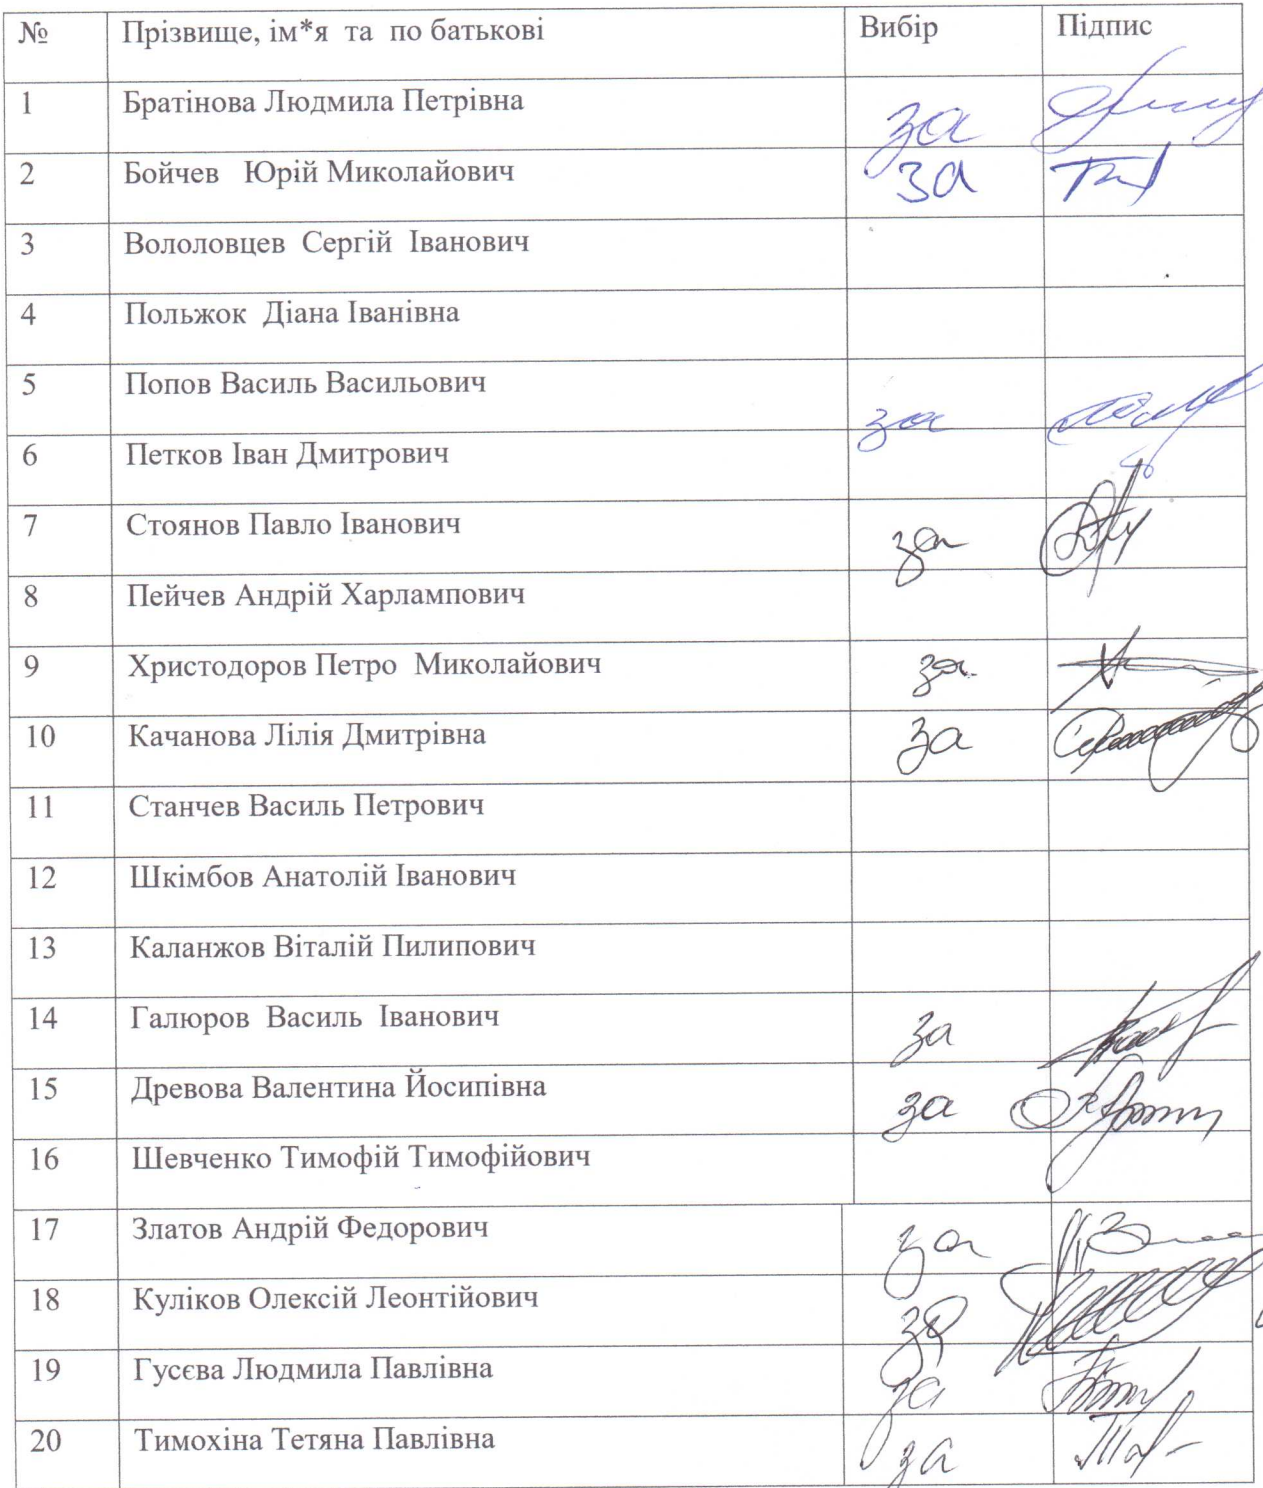 № Прізвище, ім*я та по батькові Вибір Підпис
1 Братінова Людмила Петрівна за
2 Бойчев Юрій Миколайович за
3 Вололовцев Сергій Іванович
4 Польжок Діана Іванівна
5 Попов Василь Васильович за
6 Петков Іван Дмитрович
7 Стоянов Павло Іванович за
8 Пейчев Андрій Харлампович
9 Христодоров Петро Миколайович за
10 Качанова Лілія Дмитрівна за
11 Станчев Василь Петрович
12 Шкімбов Анатолій Іванович
13 Каланжов Віталій Пилипович
14 Галюров Василь Іванович за
15 Древова Валентина Йосипівна за
16 Шевченко Тимофій Тимофійович
17 Златов Андрій Федорович за
18 Куліков Олексій Леонтійович за
19 Гусєва Людмила Павлівна за
20 Тимохіна Тетяна Павлівна за